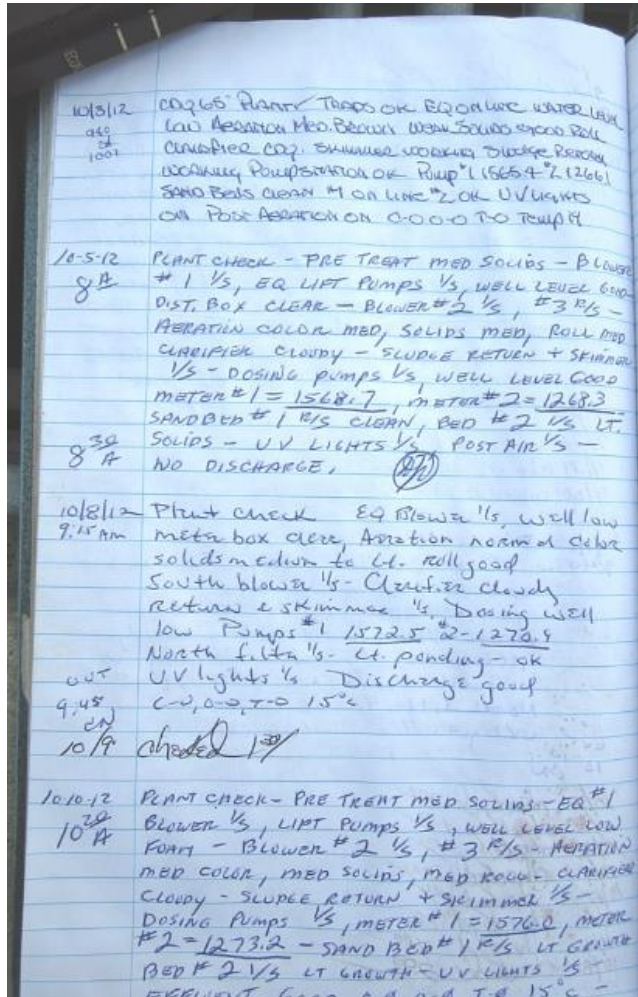 10/3/12 CO265 PLANT/ TRAPS OK EQ ON LINE WATER LEVEL
LOW AERATION MED. BROWN WEAK SOLIDS GOOD ROLL
1001 CLARIFIER SKIMMER WORKING SLUDGE RETURN
WORKING PUMPSTATION OK PUMP #1 15654 #2 12661
SAND BEDS CLEAN #1 ON LINE #2 OK UV LIGHTS
ON POST AERATION ON C-0 O-0 T-0 TEMP
10-5-12 PLANT CHECK - PRE TREAT MED SOLIDS - BLOWER
8 A #1 I/S, EQ LIFT PUMPS I/S, WELL LEVEL GOOD
DIST. BOX CLEAR - BLOWER #2 I/S, #3 R/S -
AERATION COLOR MED, SOLIDS MED, ROLL MED
CLARIFIER CLOUDY - SLUDGE RETURN + SKIMMER
I/S - DOSING PUMPS I/S, WELL LEVEL GOOD
METER #1 = 1568.7, METER #2 = 1268.3
SANDBED #1 R/S CLEAN, BED #2 I/S LT.
SOLIDS - UV LIGHTS I/S POST AIR I/S -
8 30 A NO DISCHARGE.
10/8/12 Plant check EQ Blower I/S, well low
9:15 AM meter box clear, Aeration normal color
solids medium to Lt. roll good
South blower I/S - Clarifier cloudy
return & skimmer I/S, Dosing well
low Pumps #1 1572.5 #2 - 1270.9
North filter I/S - Lt. ponding - ok
OUT UV lights I/S Discharge good
9:45 C-0, O-0, T-0 15°C
10/9 checked 1 30/
10-10-12 PLANT CHECK - PRE TREAT MED SOLIDS - EQ #1
10 20 A BLOWER I/S, LIFT PUMPS I/S, WELL LEVEL LOW
FOAM - BLOWER #2 I/S, #3 R/S - AERATION
MED COLOR, MED SOLIDS, MED ROLL - CLARIFIER
CLOUDY - SLUDGE RETURN + SKIMMER I/S -
DOSING PUMPS I/S, METER #1 = 1576.0, METER
#2 = 1273.2 - SAND BED #1 R/S LT GROWTH
BED #2 I/S LT GROWTH - UV LIGHTS I/S -
EFFLUENT T-0 15°C -